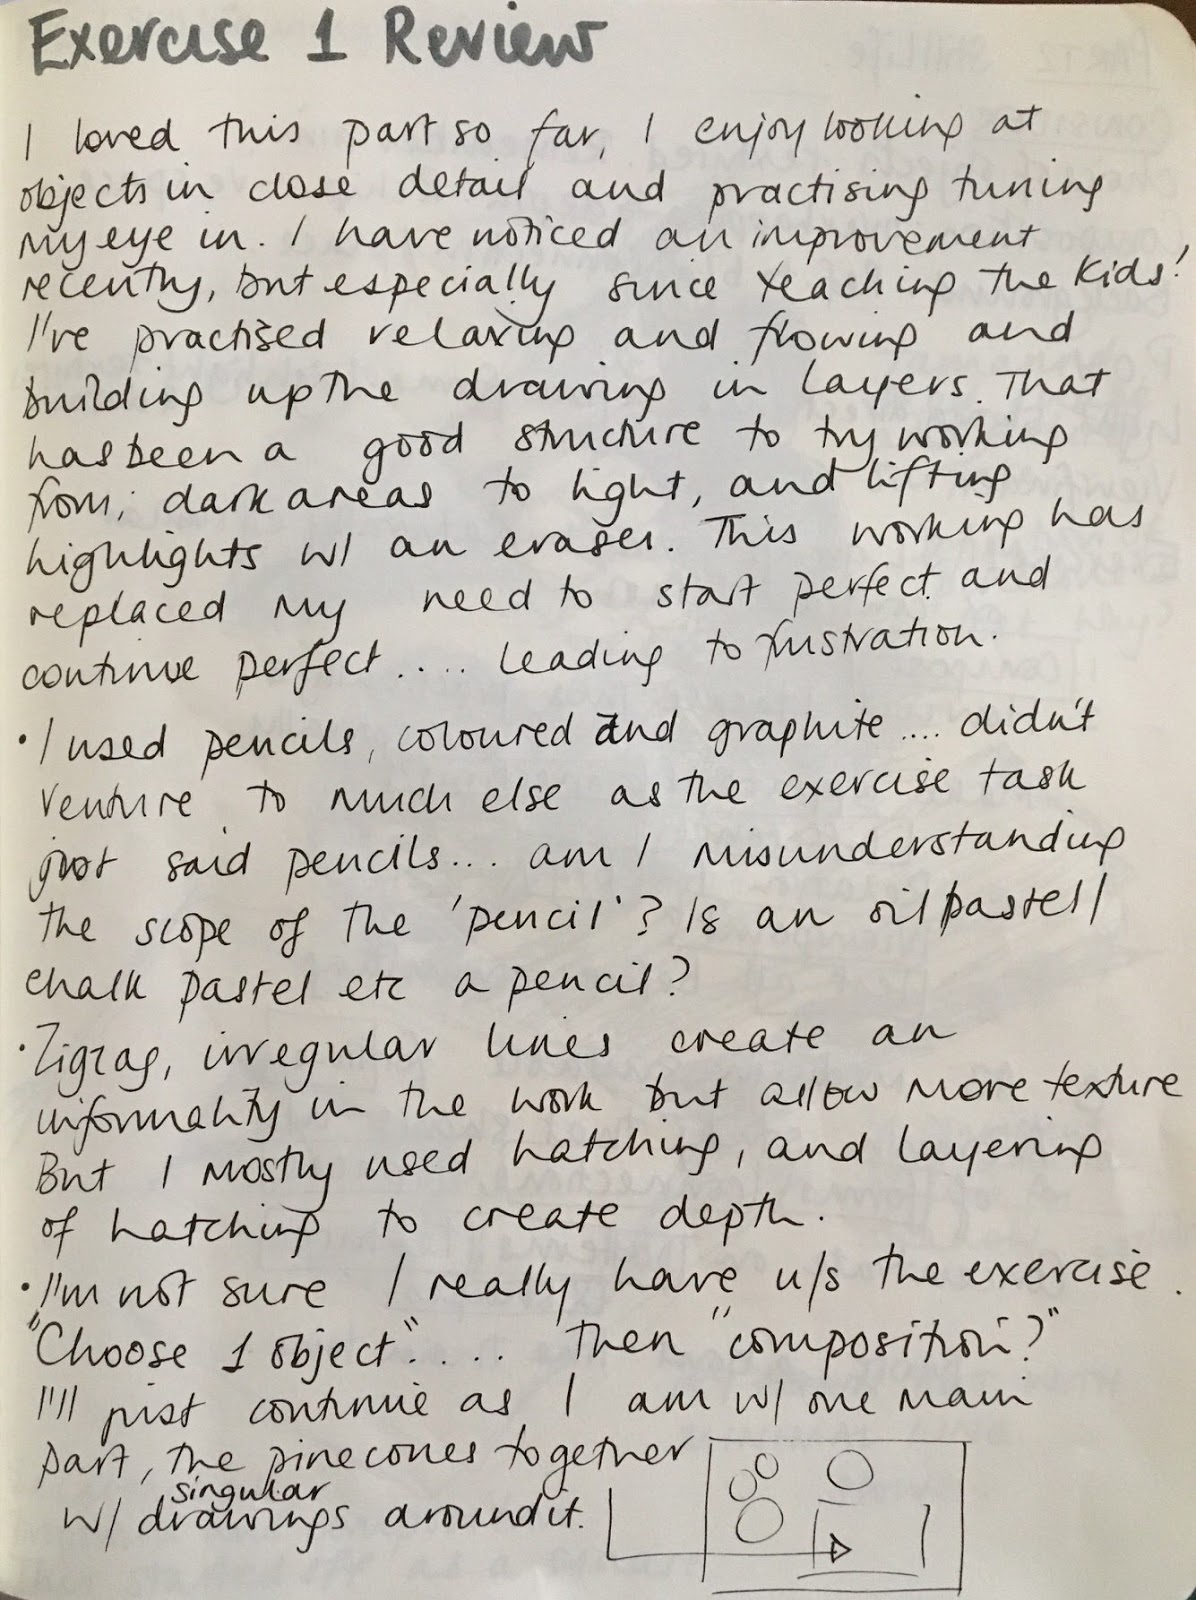 Exercise 1 Review
I loved this part so far, I enjoy looking at
objects in close detail and practising tuning
my eye in. I have noticed an improvement
recently, but especially since teaching the kids!
I've practised relaxing and flowing and
building up the drawing in layers. That
has been a good structure to try working
from; dark areas to light, and lifting
highlights w/ an eraser. This working has
replaced my need to start perfect and
continue perfect.... leading to frustration.
• I used pencils, coloured and graphite.... didn't
venture to much else as the exercise task
just said pencils... am I misunderstanding
the scope of the 'pencil'? Is an oil pastel/
chalk pastel etc a pencil?
• Zigzag, irregular lines create an
informality in the work but allow more texture
But I mostly used hatching, and layering
of hatching to create depth.
• I'm not sure I really have u/s the exercise.
"Choose 1 object".... Then "composition?"
I'll just continue as I am w/ one main
part, the pinecones together
singular
w/ drawings around it.